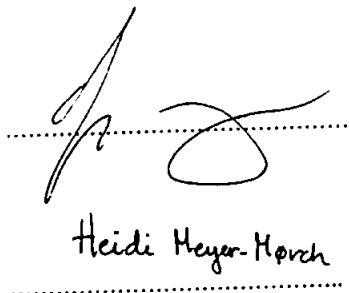 Heidi Meyer-Mørch